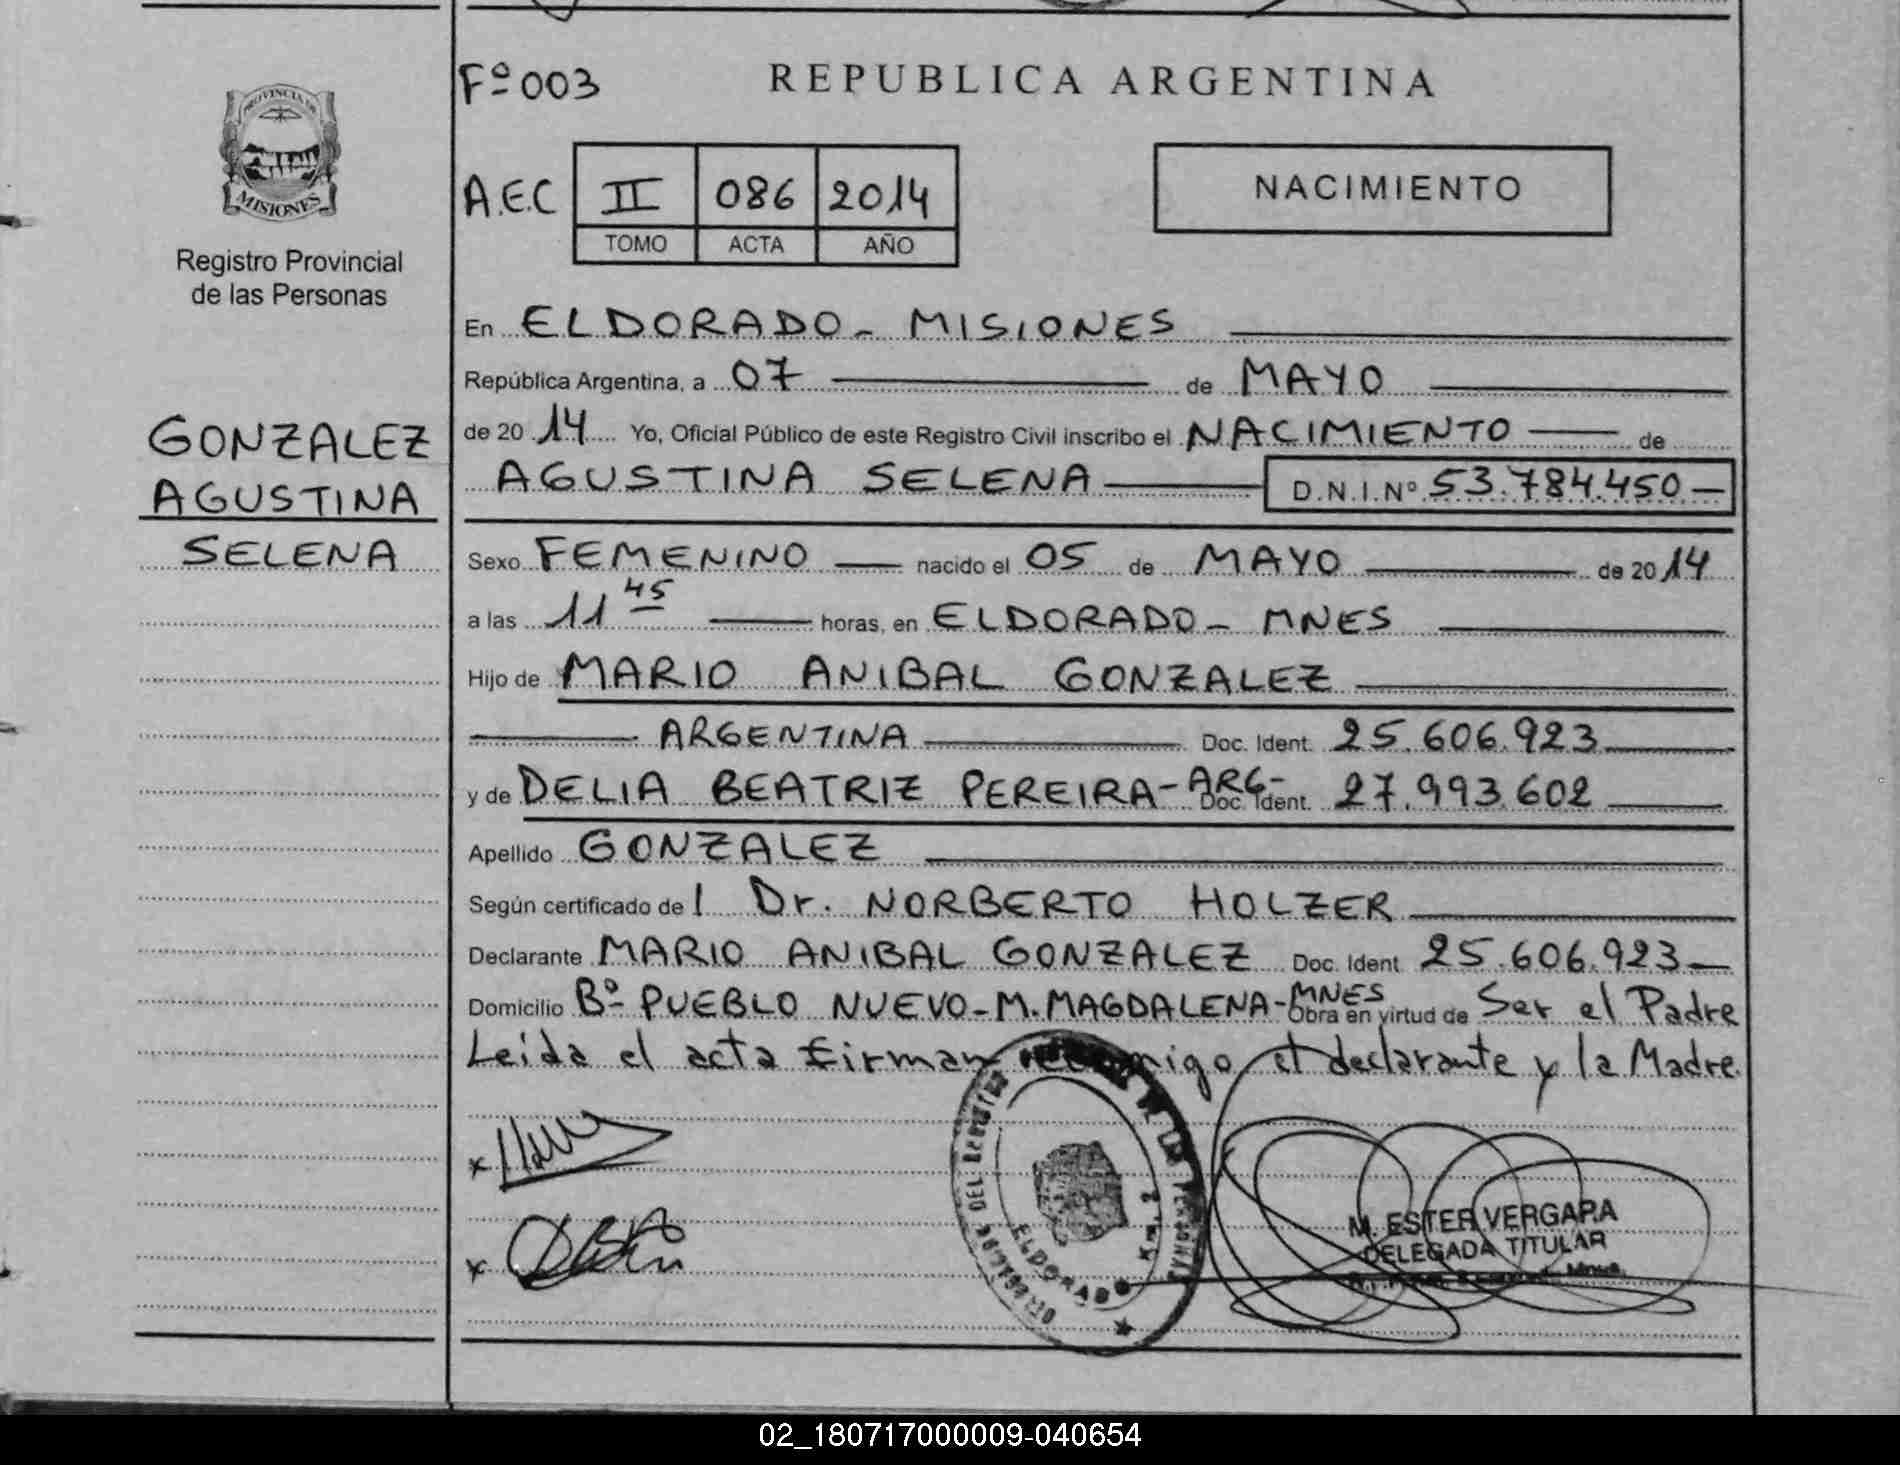 Fº 003
REPUBLICA ARGENTINA
PROVINCIA DE
MISIONES
Registro Provincial
de las Personas
A.E.C II 086 2014
TOMO ACTA AÑO
NACIMIENTO
GONZALEZ
AGUSTINA
SELENA
En ELDORADO - MISIONES
República Argentina, a 07 de MAYO
de 2014 Yo, Oficial Público de este Registro Civil inscribo el NACIMIENTO de
AGUSTINA SELENA D.N.I.Nº 53.784.450
Sexo FEMENINO nacido el 05 de MAYO de 2014
a las 11 45 horas, en ELDORADO - MNES
Hijo de MARIO ANIBAL GONZALEZ
ARGENTINA Doc. Ident. 25.606.923
y de DELIA BEATRIZ PEREIRA - ARG - Doc. Ident. 27.993.602
Apellido GONZALEZ
Según certificado de l Dr. NORBERTO HOLZER
Declarante MARIO ANIBAL GONZALEZ Doc. Ident 25.606.923
Domicilio Bº PUEBLO NUEVO - M. MAGDALENA - MNES Obra en virtud de Ser el Padre
Leida el acta firman el declarante y la Madre
ELDORADO
M. ESTER VERGARA
DELEGADA TITULAR
02_180717000009-040654